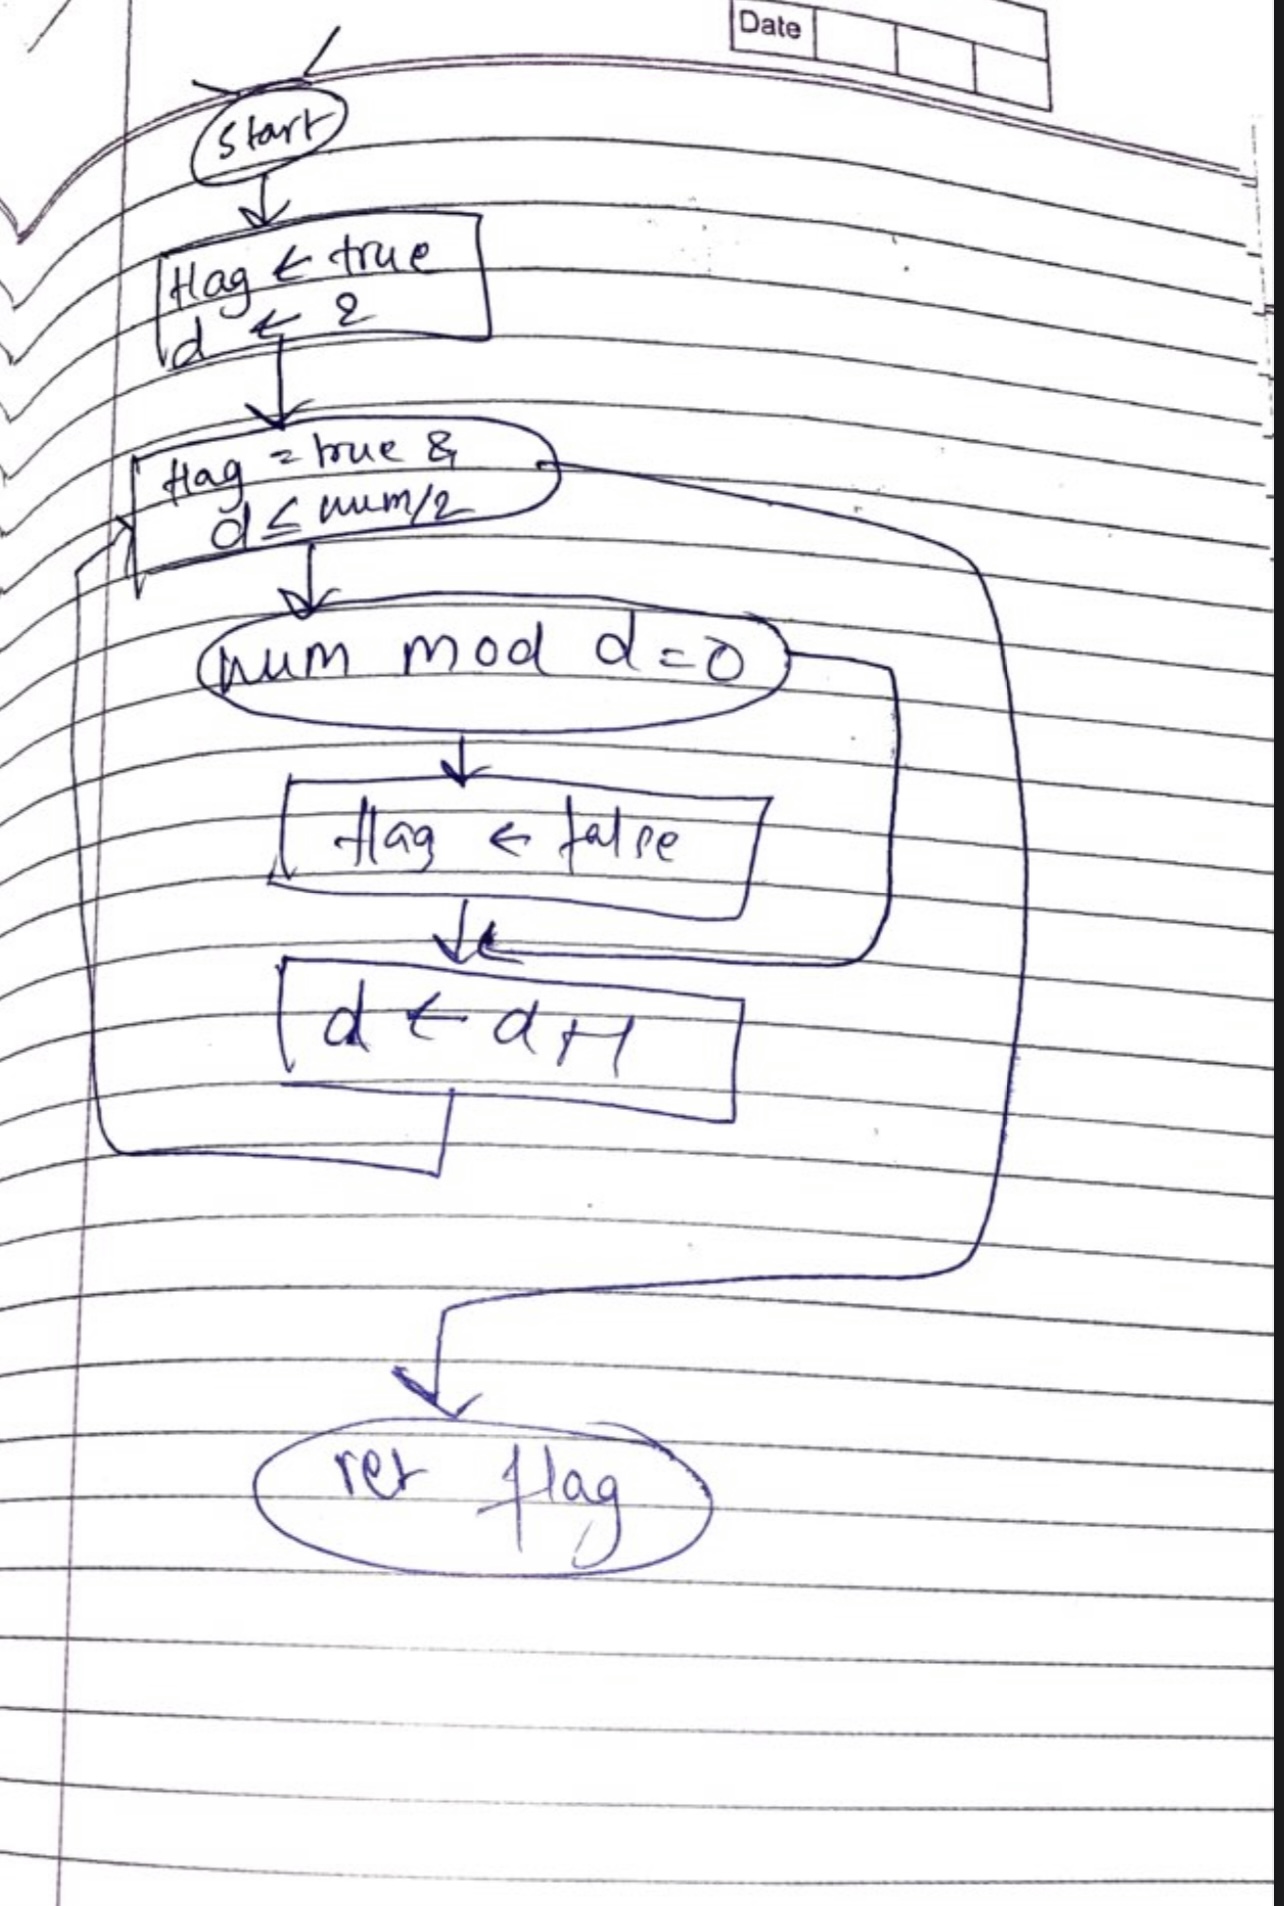 Date
Start
flag ← true
d ← 2
flag = true &
d ≤ num/2
num mod d = 0
flag ← false
d ← d+1
ret flag